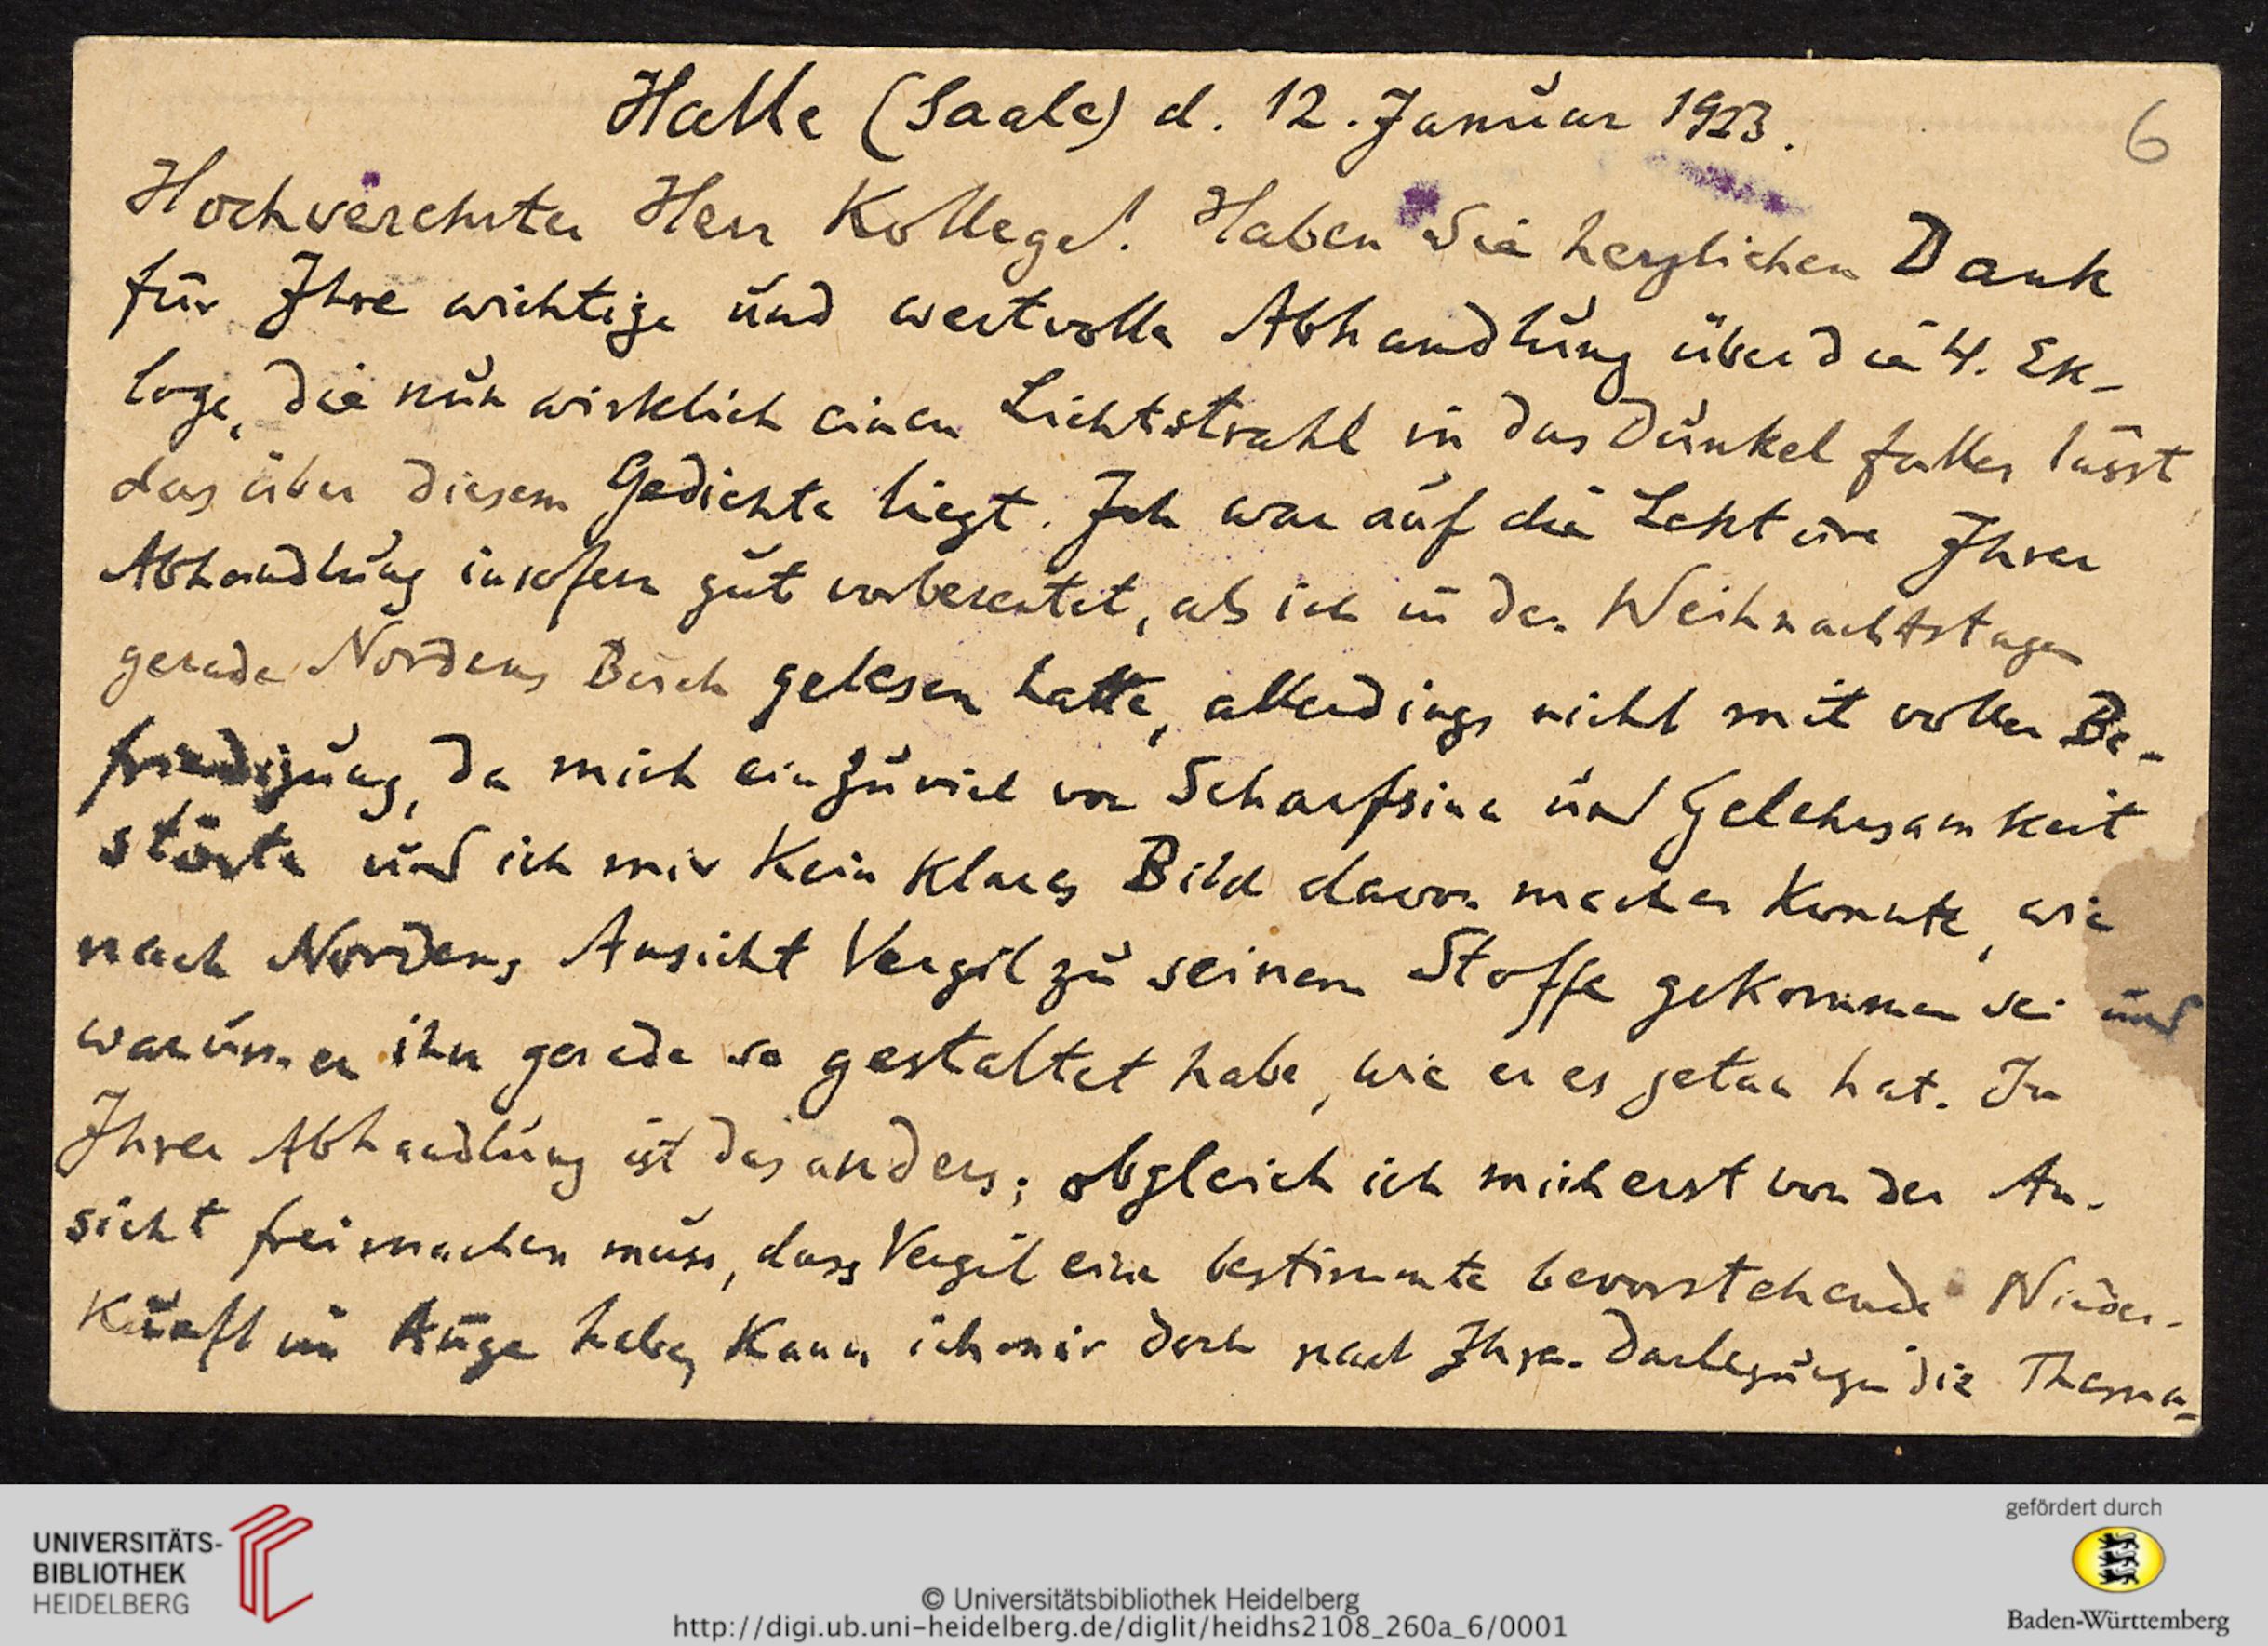 Halle (Saale) d. 12. Januar 1923.
6
Hochverehrter Herr Kollege! Haben Sie herzlichen Dank
für Ihre wichtige und wertvolle Abhandlung über die 4. Ek-
loge, die nun wirklich einen Lichtstrahl in das Dunkel fallen lässt
das über diesem Gedichte liegt. Ich war auf die Lektüre Ihrer
Abhandlung insofern gut vorbereitet, als ich in den Weihnachtstagen
gerade Nordens Buch gelesen hatte, allerdings nicht mit voller Be-
friedigung, da mich ein zuviel von Scharfsinn und Gelehrsamkeit
störte und ich mir kein klares Bild davon machen konnte, wie
nach Nordens Ansicht Vergil zu seinem Stoffe gekommen sei und
warum er ihn gerade so gestaltet habe, wie er es getan hat. In
Ihrer Abhandlung ist das anders; obgleich ich mich erst von der An-
sicht freimachen muss, dass Vergil eine bestimmte bevorstehende Nieder-
kunft im Auge habe, kann ich mir doch nach Ihren Darlegungen die Thema-
UNIVERSITÄTS-
BIBLIOTHEK
HEIDELBERG
© Universitätsbibliothek Heidelberg
http://digi.ub.uni-heidelberg.de/diglit/heidhs2108_260a_6/0001
gefördert durch
Baden-Württemberg